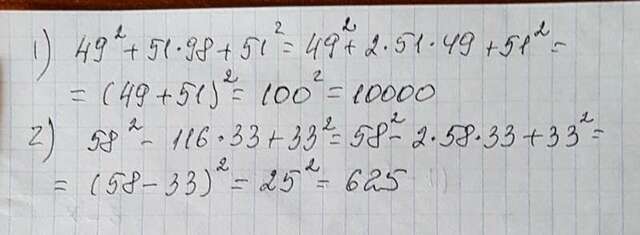 1) 49² + 51·98 + 51² = 49² + 2·51·49 + 51² =
= (49 + 51)² = 100² = 10000
2) 58² - 116·33 + 33² = 58² - 2·58·33 + 33² =
= (58 - 33)² = 25² = 625